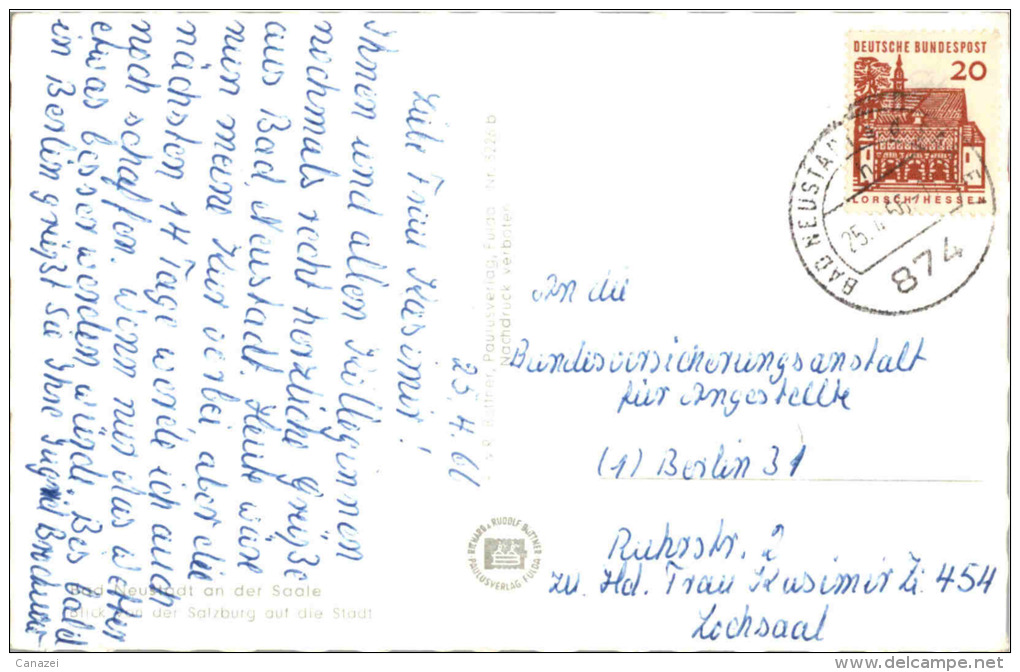 25.4.66
Liebe Frau Kasimir!
Ihnen und allen Kolleginnen
nochmals recht herzliche Grüße
aus Bad Neustadt. Heute wäre
nun meine Kur vorbei aber die
nächsten 14 Tage werde ich auch
noch schaffen. Wenn nur das Wetter
etwas besser werden würde. Bis bald
in Berlin grüßt Sie Ihre
Bad Neustadt an der Saale
Blick von der Salzburg auf die Stadt
Büttner, Paulusverlag, Fulda Nr.
Nachdruck verboten
RICHARD & RUDOLF BÜTTNER
PAULUSVERLAG FULDA
DEUTSCHE BUNDESPOST
20
LORSCH/HESSEN
BAD NEUSTADT
25.4.
874
An die
Bundesversicherungsanstalt
für Angestellte
(1) Berlin 31
Ruhrstr. 2
zu Hd. Frau Kasimir Zi. 454
Lochsaal
Canazei
www.delcampe.net